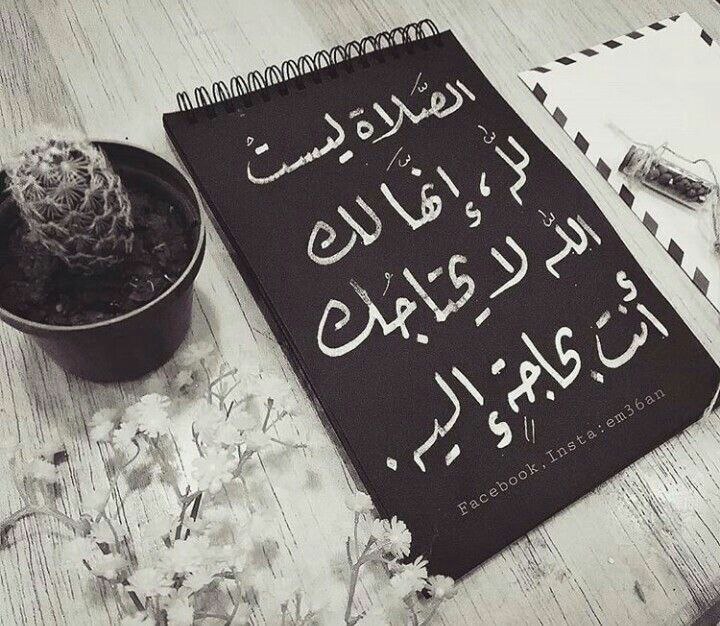 الصَّلاة ليستْ
للّٰه، إنهَّا لك
اللّٰه لا يحتاجُك
أنت بحاجةٍ إليه.
Facebook,Insta:em36an